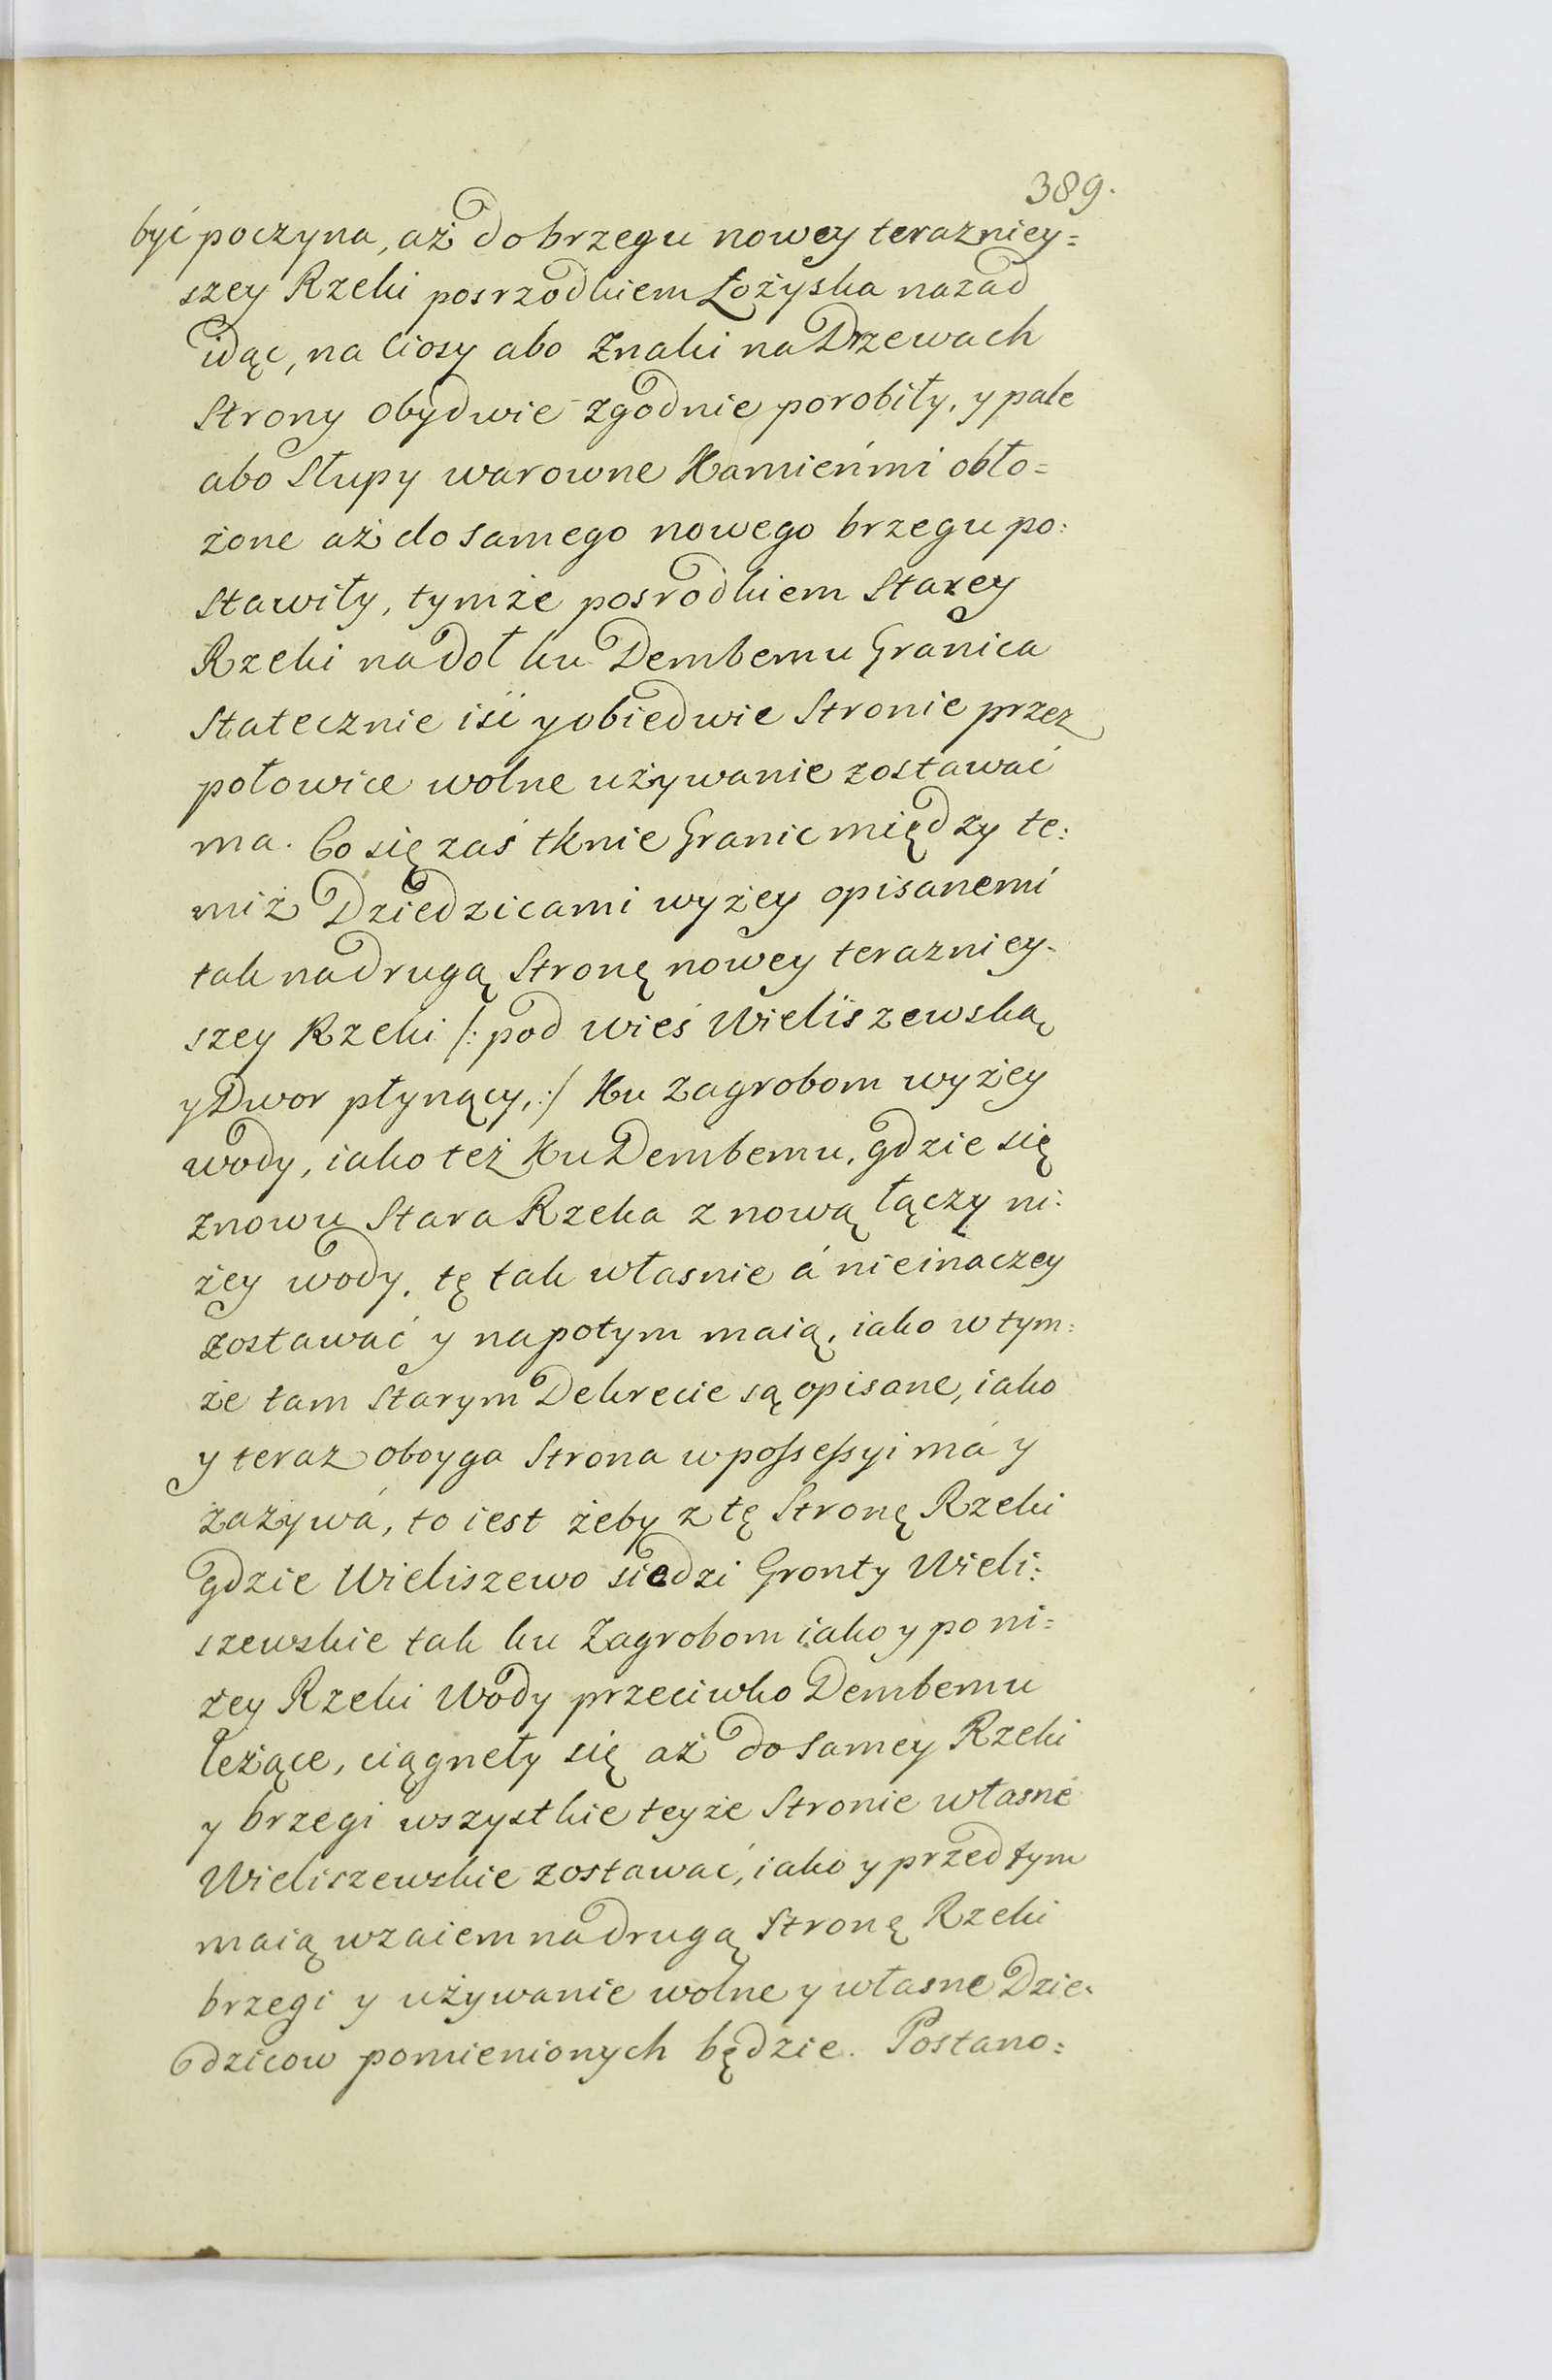 389.
być poczyna, aż do brzegu nowey terazniey=
szey Rzeki posrzodkiem Łożyska nazad
idąc, na Ciosy abo Znaki na Drzewach
Strony obydwie zgodnie porobiły, y pale
abo Słupy warowne Kamieńmi obło=
żone aż do samego nowego brzegu po:
stawiły, tymże posrodkiem Starey
Rzeki na doł ku Dembemu Granica
Statecznie iść y obiedwie Stronie przez
połowice wolne używanie zostawać
ma. Co się zaś tknie Granic między te:
miż Dziedzicami wyżey opisanemi
tak na drugą Stronę nowey terazniey-
szey Rzeki /: pod wieś Wieliszewską
y Dwor płynący, :/ Ku Zagrobom wyżey
wody, iako też Ku Dembemu, gdzie się
znowu Stara Rzeka z nową łączy ni:
żey wody, tę tak własnie á nieinaczey
zostawać y napotym maią, iako w tym:
że tam Starym Dekrecie są opisane, iako
y teraz oboyga Strona w possessyi má y
zażywá, to iest żeby z tę Stronę Rzeki
gdzie Wieliszewo siedzi Gronty Wieli:
szewskie tak ku Zagrobom iako y po ni=
żey Rzeki Wody przeciwko Dembemu
leżące, ciągneły się aż do samey Rzeki
y brzegi wszystkie teyże Stronie własne
Wieliszewskie zostawać, iako y przed tym
maią wzaiem na drugą Stronę Rzeki
brzegi y używanie wolne y własne Dzie=
dzicow pomienionych będzie. Postano=